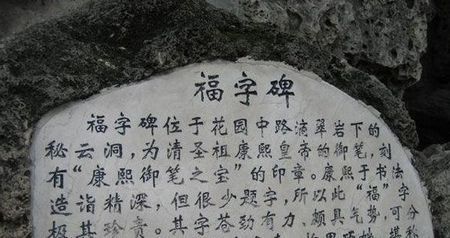 福字碑
福字碑位于花园中路滴翠岩下的
秘云洞,为清圣祖康熙皇帝的御笔,刻
有“康熙御笔之宝”的印章。康熙于书法
造诣精深,但很少题字,所以此“福”字
极其珍贵。其字苍劲有力、颇具气势,可分